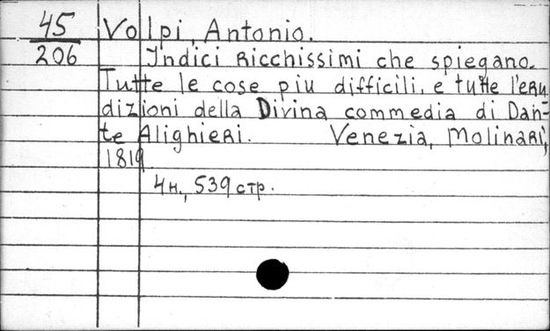 45
206
Volpi, Antonio.
Indici Ricchissimi che spiegano.
Tutte le cose piu difficili, e tutte l'eru
dizioni della Divina commedia di Dan-
te Alighieri. Venezia, Molinari,
1819.
4н., 539 стр.